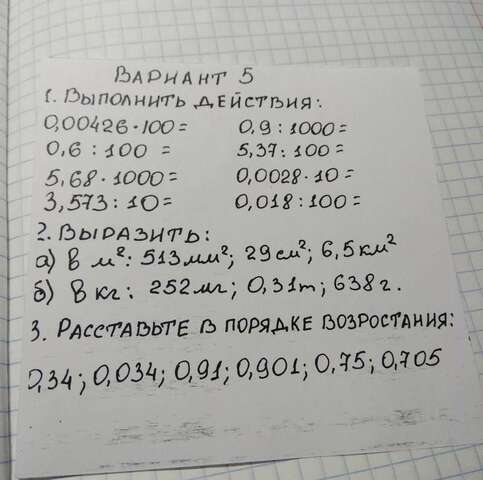 ВАРИАНТ 5
1. ВЫПОЛНИТЬ ДЕЙСТВИЯ:
0,00426·100= 0,9:1000=
0,6:100= 5,37:100=
5,68·1000= 0,0028·10=
3,573:10= 0,018:100=
2. ВЫРАЗИТЬ:
а) в м²: 513мм²; 29см²; 6,5км²
б) в кг: 252мг; 0,31т; 638г.
3. РАССТАВЬТЕ В ПОРЯДКЕ ВОЗРОСТАНИЯ:
0,34; 0,034; 0,91; 0,901; 0,75; 0,705